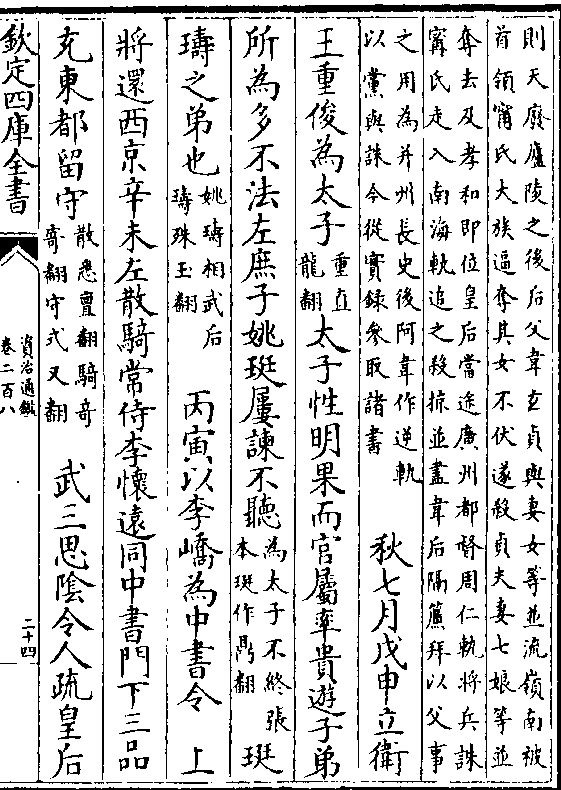 則天廢廬陵之後后父韋玄貞與妻女等並流嶺南被
首領甯氏大族逼奪其女不伏遂殺貞夫妻七娘等並
奪去及孝和即位皇后當途廣州都督周仁軌將兵誅
甯氏走入南海軌追之殺掠並盡韋后隔簾拜以父事
之用為并州長史後阿韋作逆軌
以黨與誅今從實録參取諸書
秋七月戊申立衛
王重俊為太子
重直
龍翻
太子性明果而官屬率貴遊子弟
所為多不法左庶子姚珽屢諫不聽
為太子不終張
本珽作鼎翻
珽
璹之弟也
姚璹相武后
璹殊玉翻
丙寅以李嶠為中書令
上
將還西京辛未左散騎常侍李懷遠同中書門下三品
充東都留守
散悉亶翻騎奇
寄翻守式又翻
武三思陰令人疏皇后
欽定四庫全書
資治通鑑
卷二百八
二十四